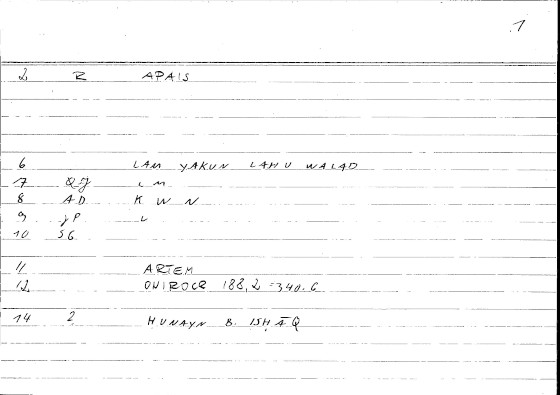 1
2 R APAIS
6 LAM YAKUN LAHU WALAD
7 QJ LM
8 AD K W N
9 JP L
10 SG
11 ARTEM
12 ONIROCR 188,2 = 340.6
14 2 HUNAYN B. ISḤĀQ